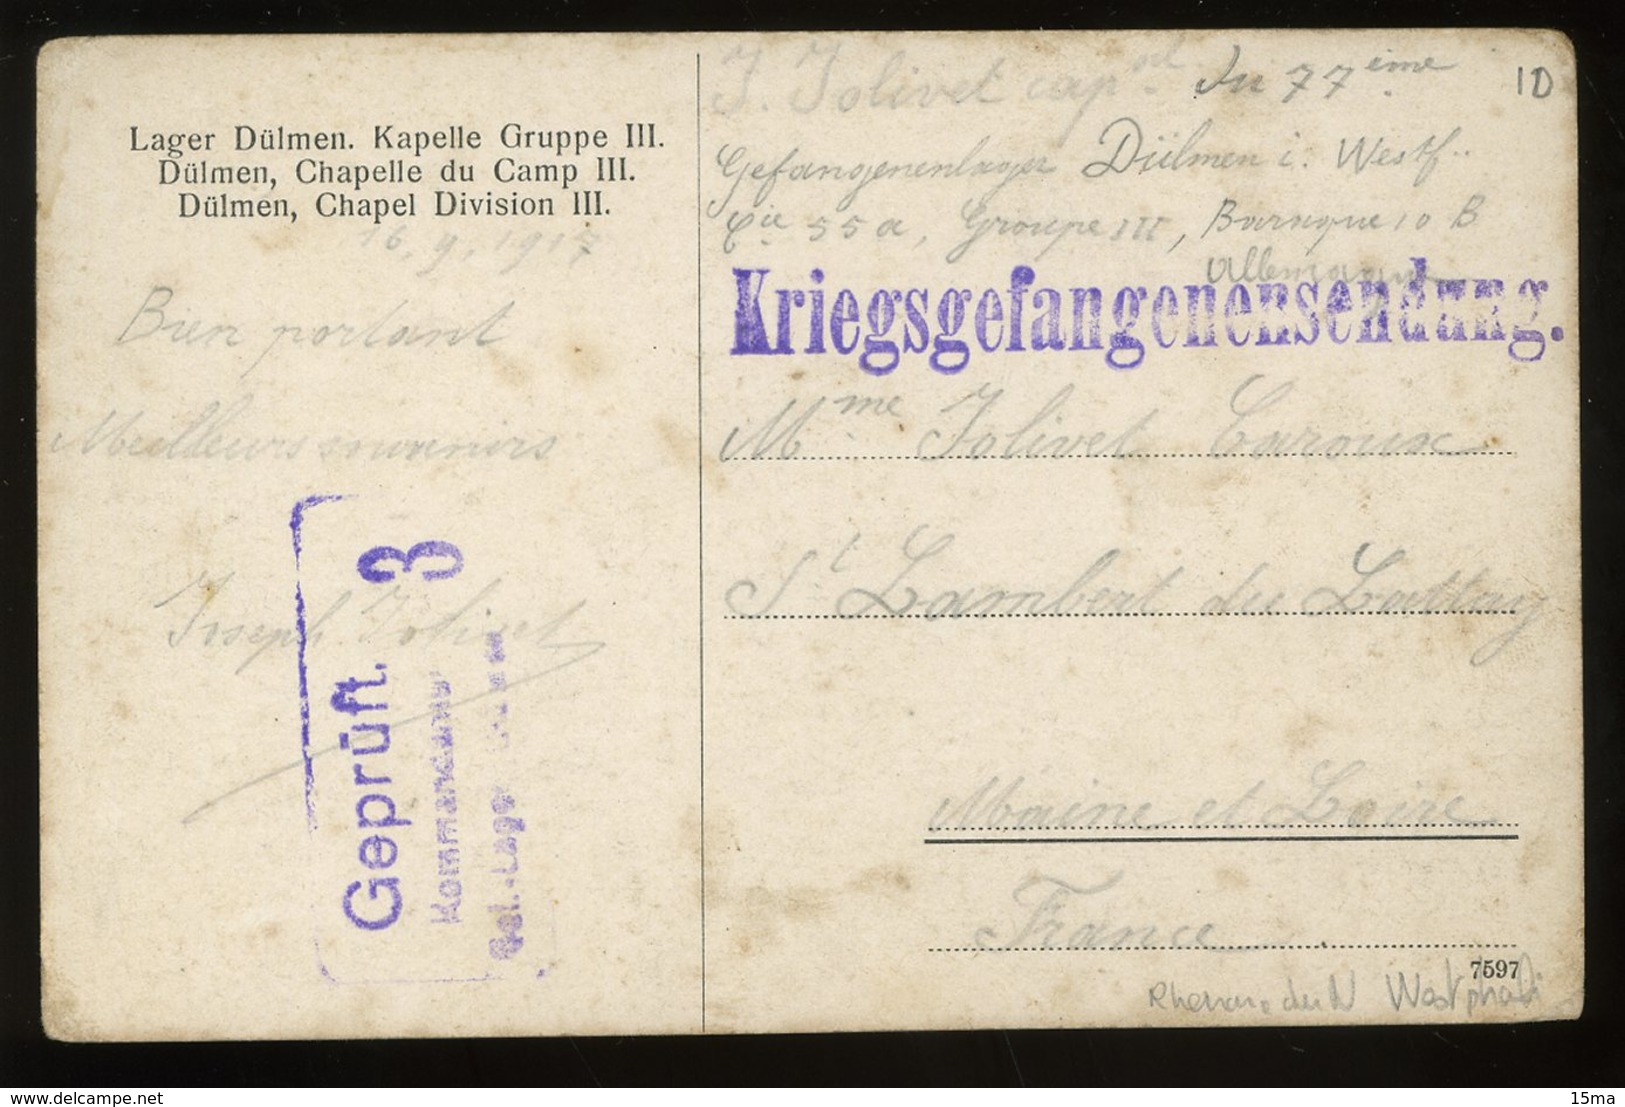 Lager Dülmen. Kapelle Gruppe III.
Dülmen, Chapelle du Camp III.
Dülmen, Chapel Division III.
16.9.1917
Bien portant
Meilleurs souvenirs
Joseph Jolivet
Geprüft. 3
Kommandantur
Gef.-Lager
J. Jolivet cap^ral du 77^ème
10
Gefangenenlager Dülmen i. Westf.
C^ie 55 a, Groupe III, Baraque 10 B
Allemagne
Kriegsgefangenensendung.
M^me Jolivet Caroux
S^t Lambert du Lattay
Maine et Loire
France
7597
Rhenan. du N Westphali
delcampe.net
15ma